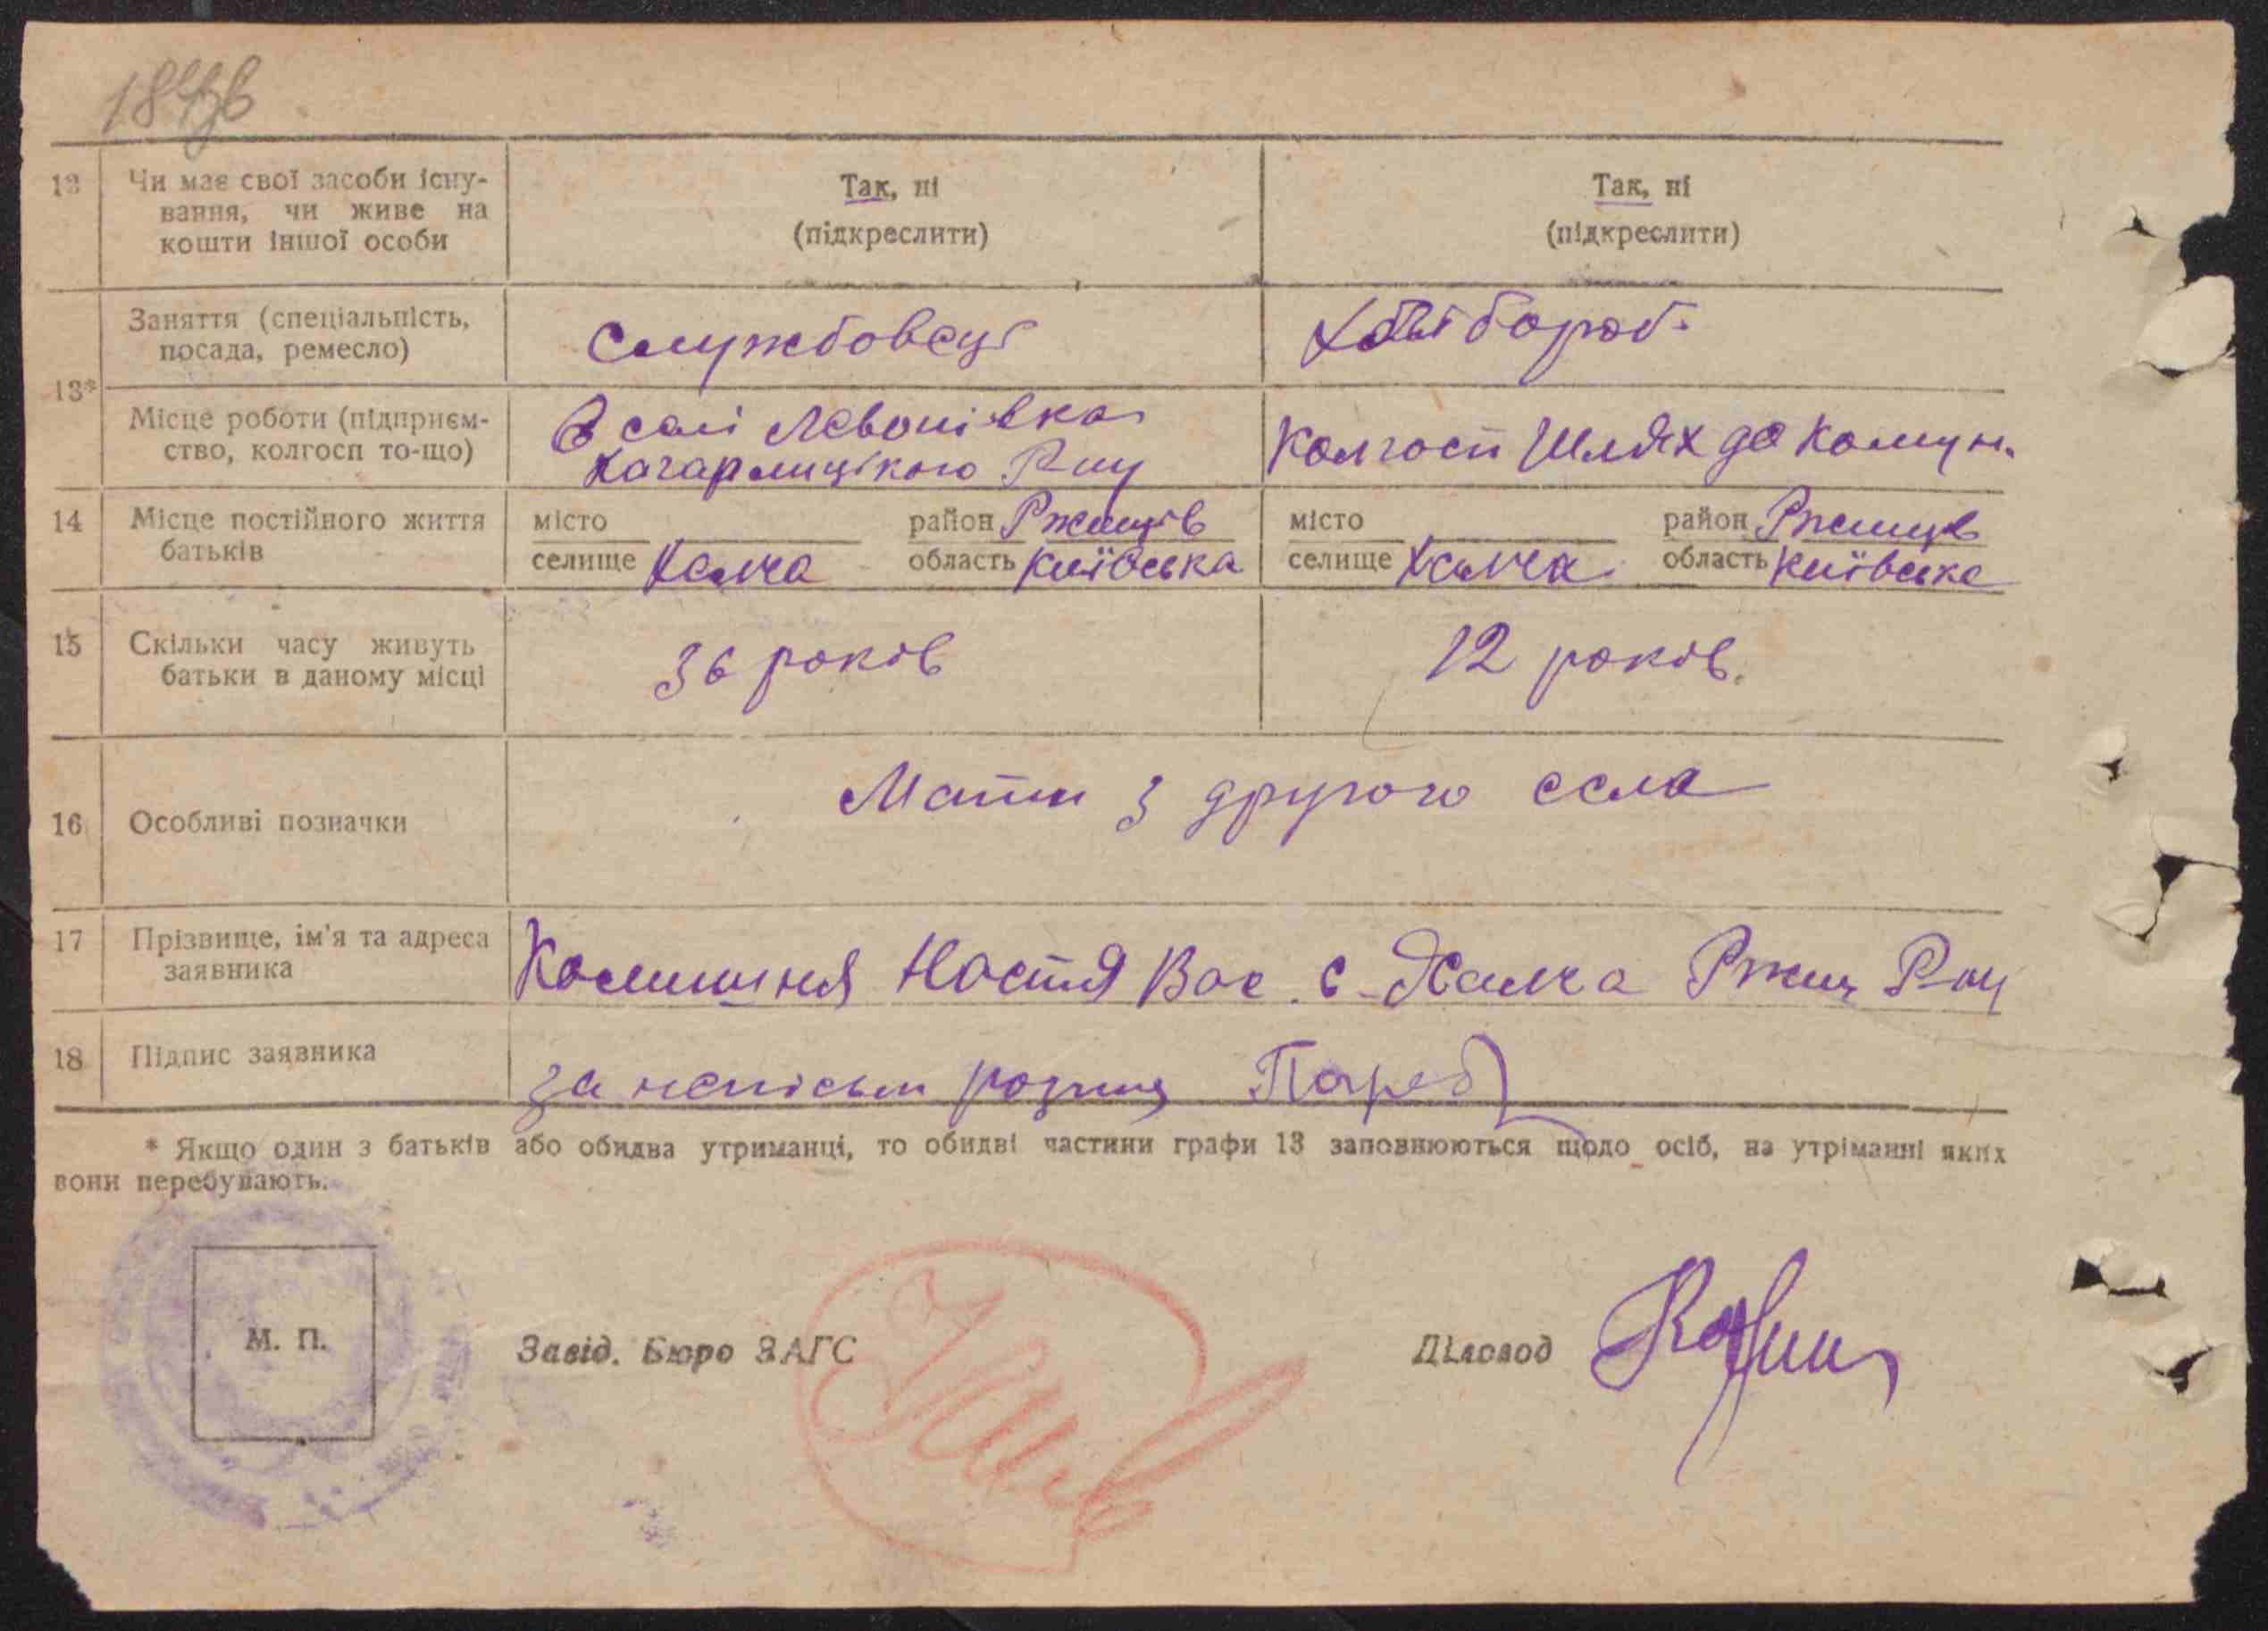 12 Чи має свої засоби існу-
вання, чи живе на
кошти іншої особи
Так, ні
(підкреслити)
Так, ні
(підкреслити)
13*
Заняття (спеціальність,
посада, ремесло)
Службовець
Хлібороб
Місце роботи (підприєм-
ство, колгосп то-що)
В селі Левонівка
Кагарлицького Р-ну
Колгосп Шлях до Комун.
14 Місце постійного життя
батьків
місто район Ржищів
селище Халча область Київська
місто район Ржищів
селище Халча область Київська
15 Скільки часу живуть
батьки в даному місці
36 років
12 років.
16 Особливі позначки
Мати з другого села
17 Прізвище, ім'я та адреса
заявника
Настя Вас. с. Халча Ржищ Р-ну
18 Підпис заявника
за неписьм
* Якщо один з батьків або обидва утриманці, то обидві частини графи 13 заповнюються щодо осіб, на утріманні яких
вони перебувають.
М. П.
Завід. Бюро ЗАГС
Діловод